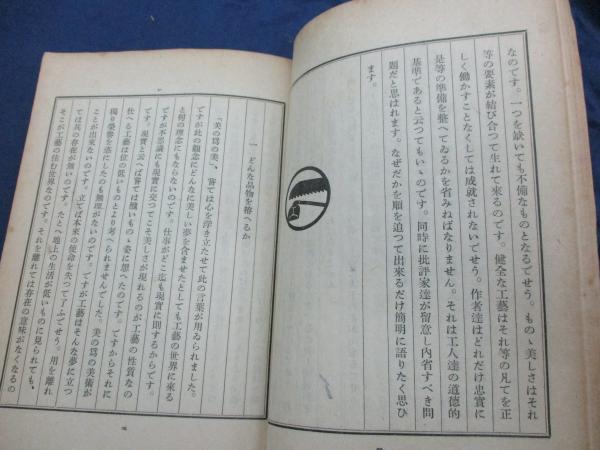 なのです。一つを缺いても不備なものとなるでせう。ものゝ美しさはそれ
等の要素が結び合つて生れて來るのです。健全な工藝はそれ等の凡てを正
しく働かすことなくしては成就されないでせう。作者達はどれだけ忠實に
是等の準備を整へてゐるかを省みねばなりません。それは工人達の道德的
基準であると云つてもいゝのです。同時に批評家達が留意し内省すべき問
題だと思はれます。なぜだかを順を追つて出來るだけ簡明に語りたく思ひ
ます。
一　どんな品物を拵へるか
「美の爲の美」、嘗ては心を浮き立たせて此の言葉が用ゐられました。
ですが此の觀念にどんなに美しい夢を含ませたとしても工藝の世界に來る
と何の理念にもならないのです。仕事がどこ迄も現實に即するからです。
ですが不思議にも現實に交つてこそ美しさが現れるのが工藝の性質なの
です。現實と云へば嘗ては醜いものゝ姿に想へたのです。ですからそれに
仕へる工藝は位の低いものとより考へられませんでした。美の爲の美術が
獨り榮譽を感じたのも無理がないのです。ですが工藝はそんな夢に立つ
ことが出來ないのです。立てば本來の使命を失つて了ふでせう。用を離れ
ては其の存在が無いのです。たとへ地上の生活が低いものに見られても、
そこが工藝の住む世界なのです。それを離れては存在の意味がなくなるの